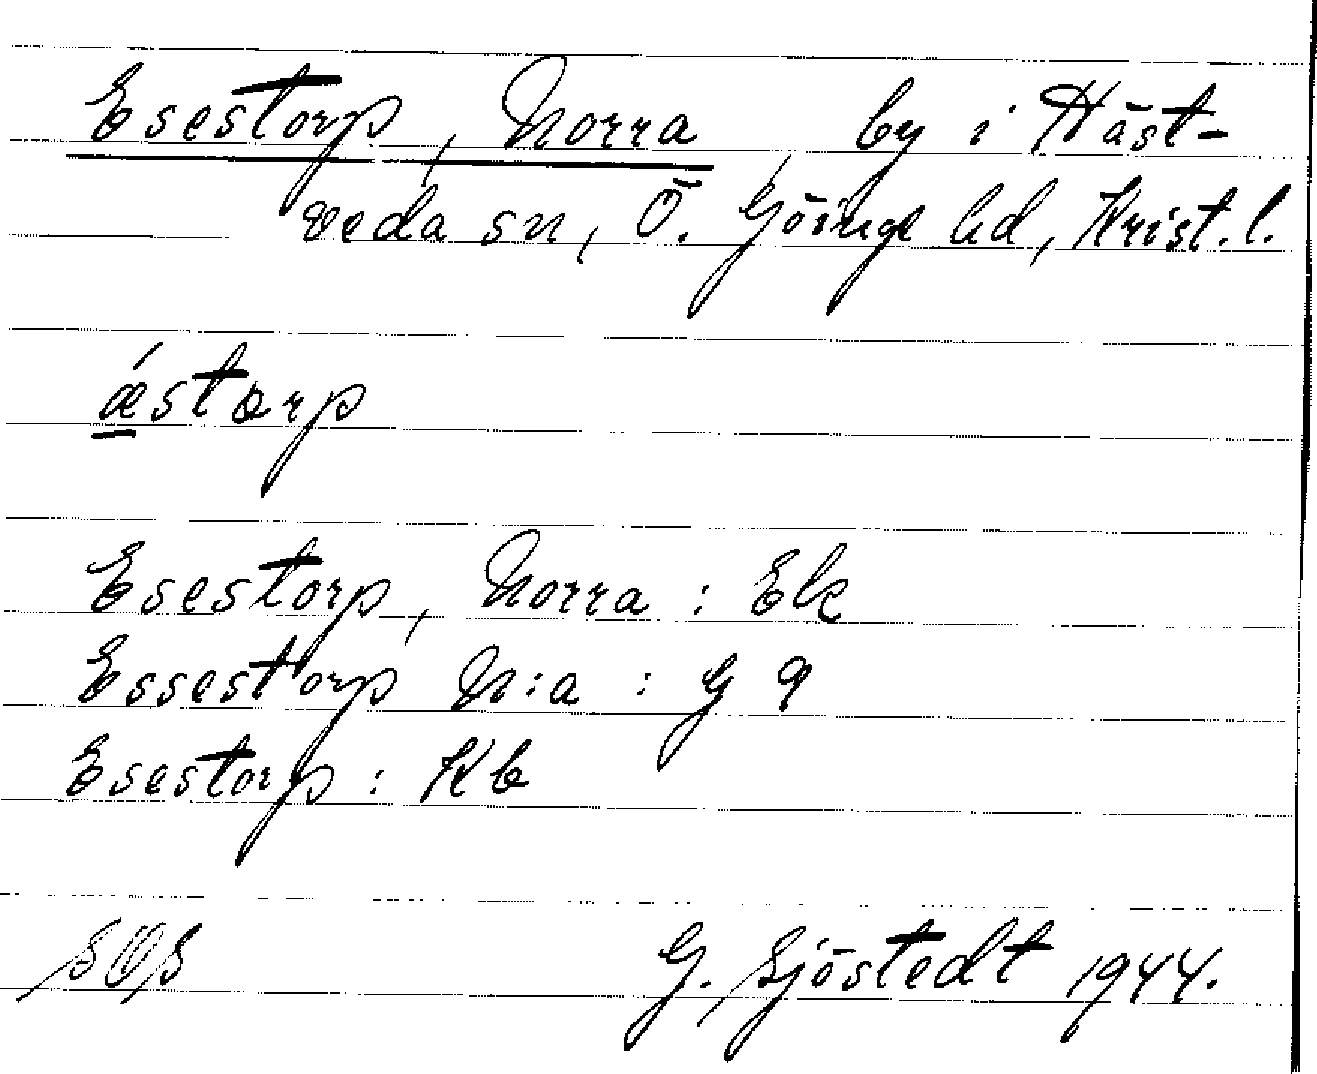 Esestorp, Norra, by i Häst-
veda sn, Ö. Göinge hd, Krist. l.
ǽstorp
Esestorp, Norra : Ek
Essestorp N:a : G 9
Esestorp : Kb
G. Sjöstedt 1944.